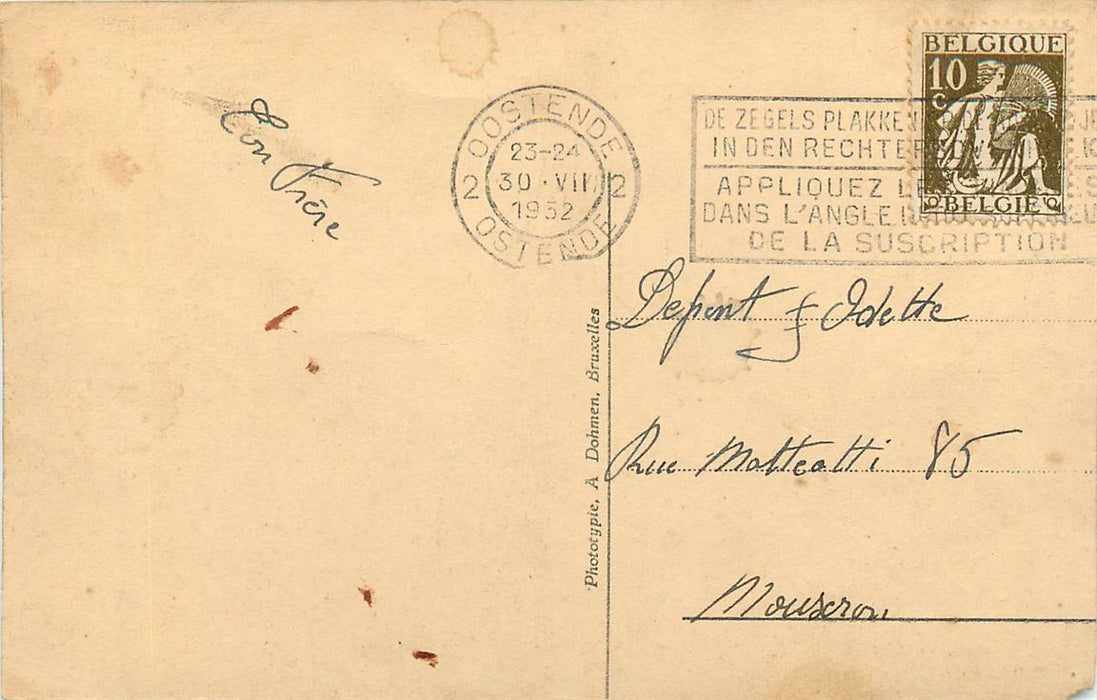 BELGIQUE
10
C
BELGIE
OOSTENDE
23-24
2 30 · VIII 2
1932
OSTENDE
DE ZEGELS PLAKKEN
IN DEN RECHTER
APPLIQUEZ LE
DANS L'ANGLE
DE LA SUSCRIPTION
Ton Frère
Depont Odette
Rue Matteotti 85
Mouscron
Phototypie, A Dohmen, Bruxelles